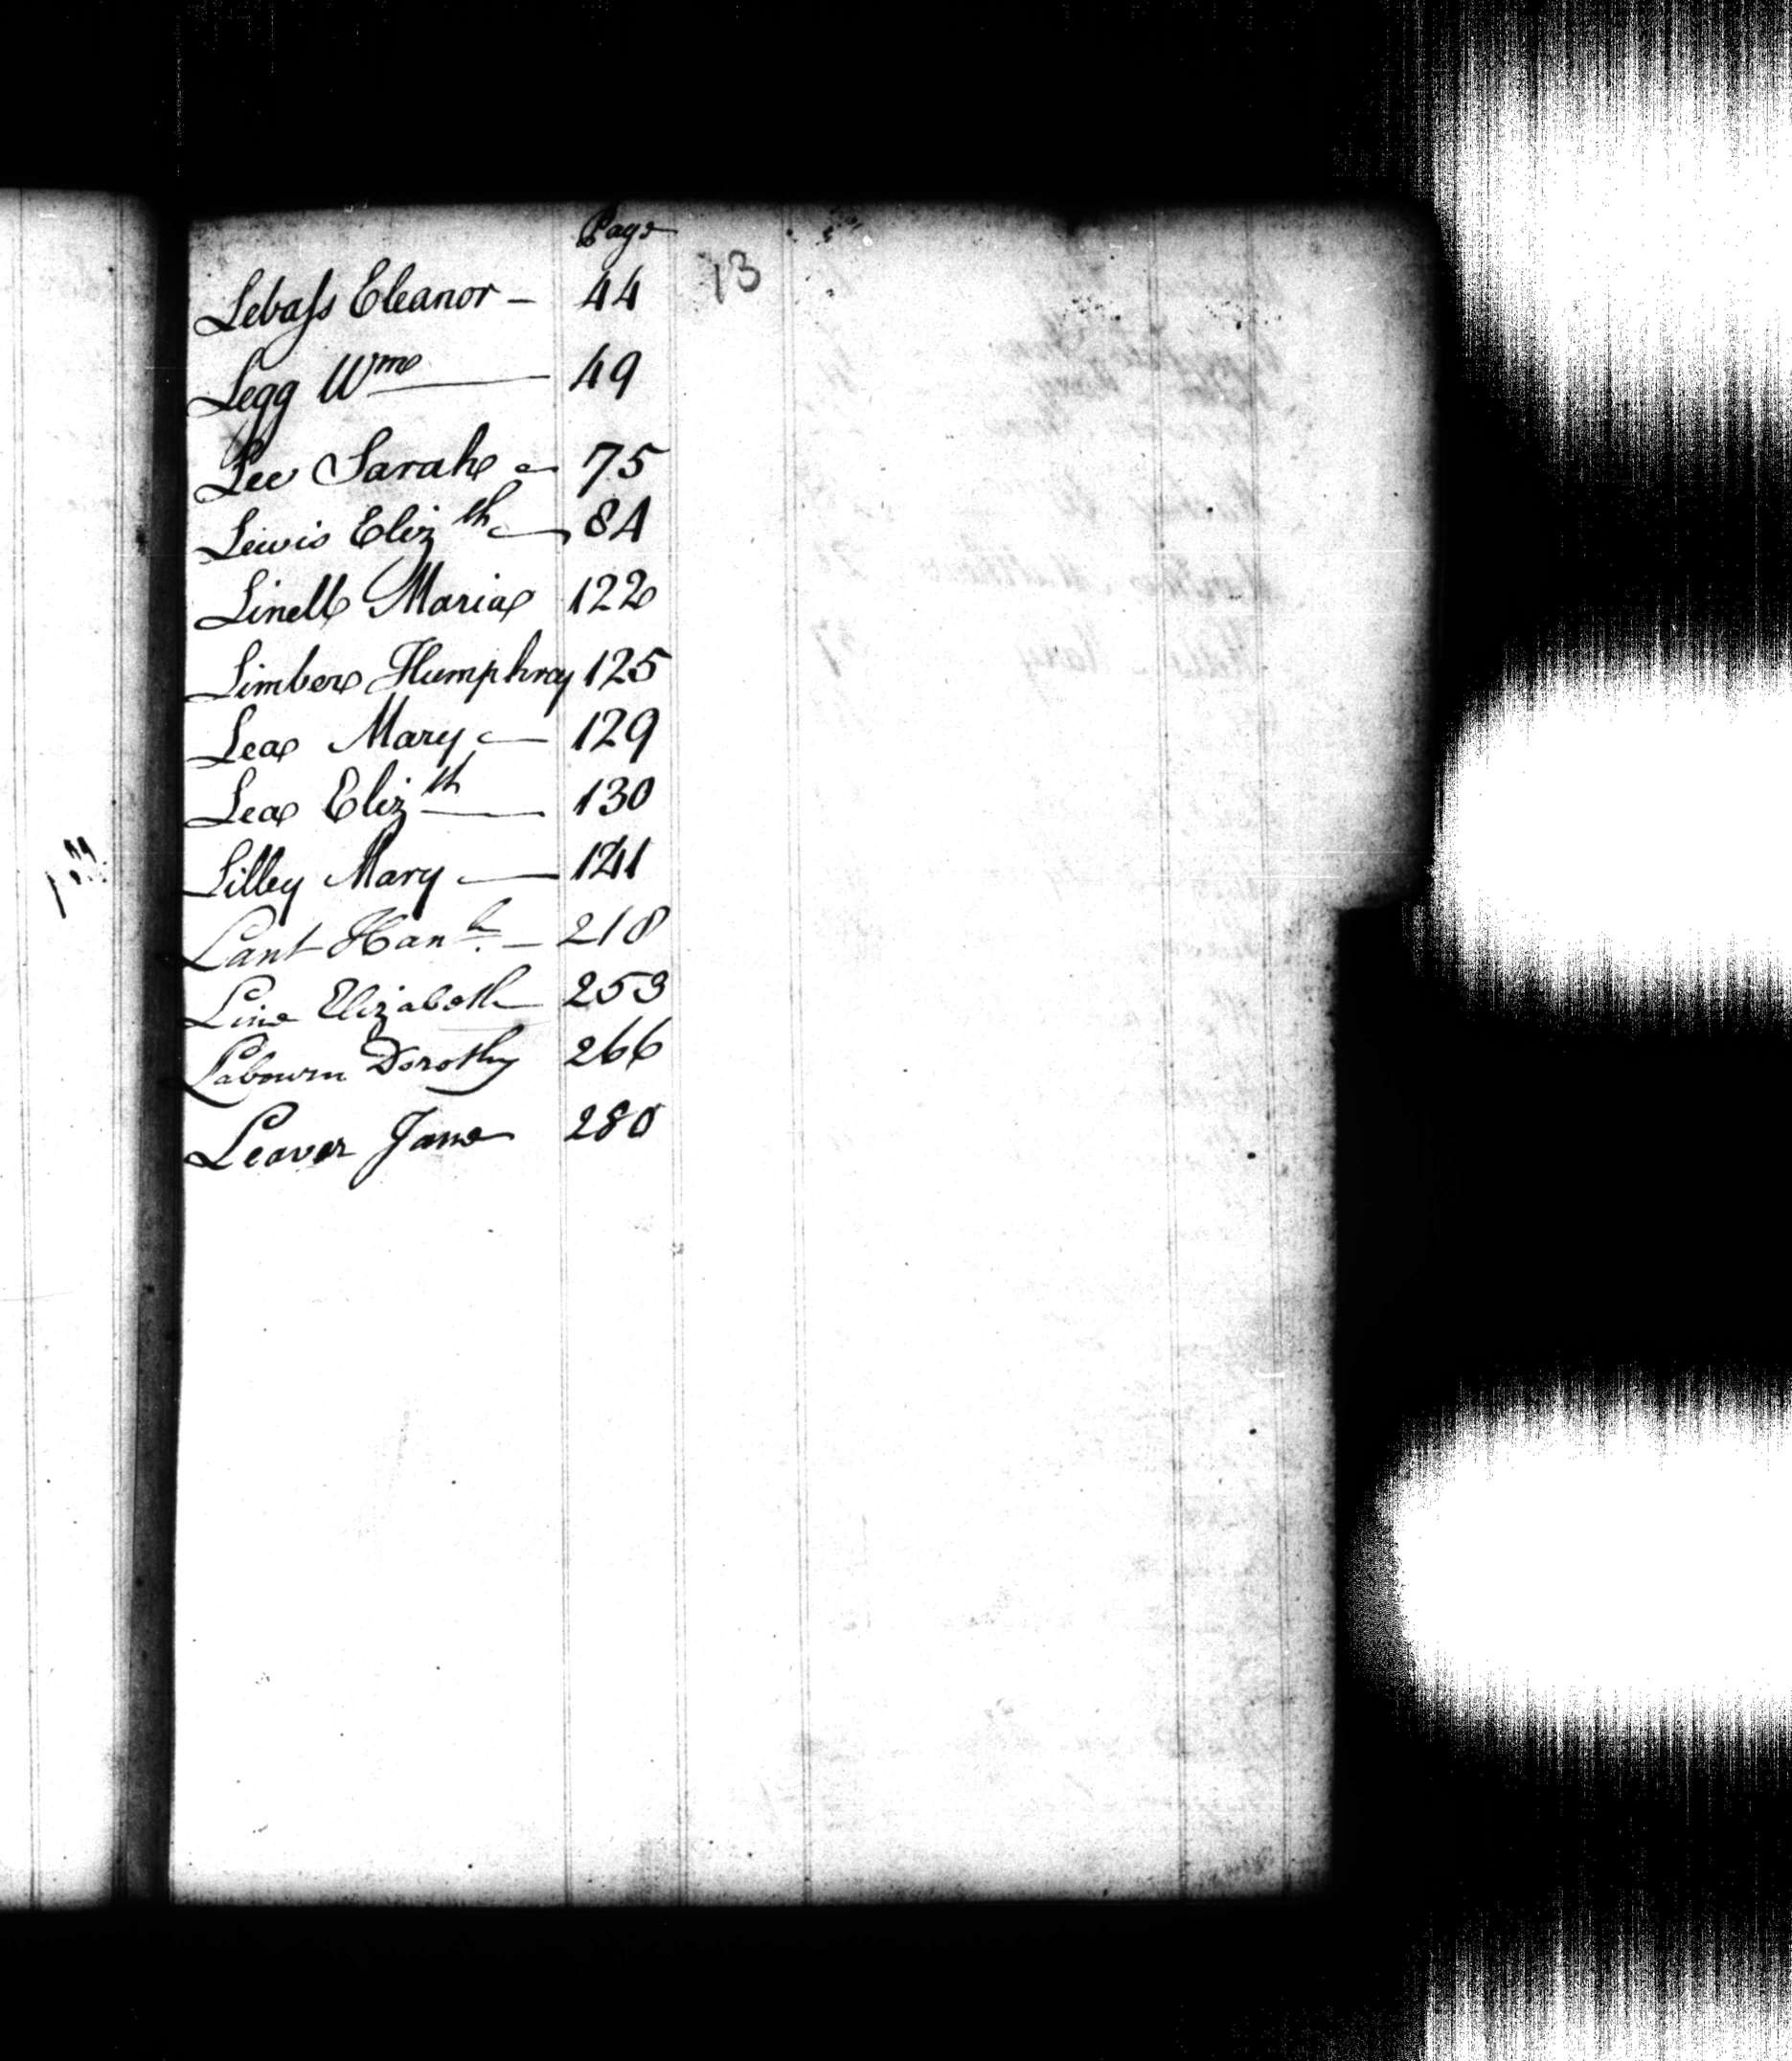 Page
13
Lebaſs Eleanor - 44
Legg Wm 49
Lee Sarah - 75
Lewis Elizth 84
Linell Maria 122
Limber Humphray 125
Lea Mary - 129
Lea Elizth 130
Lilley Mary 141
Lant Hanh. - 218
Line Elizabeth 253
Labourn Dorothy 266
Leaver Jane 280